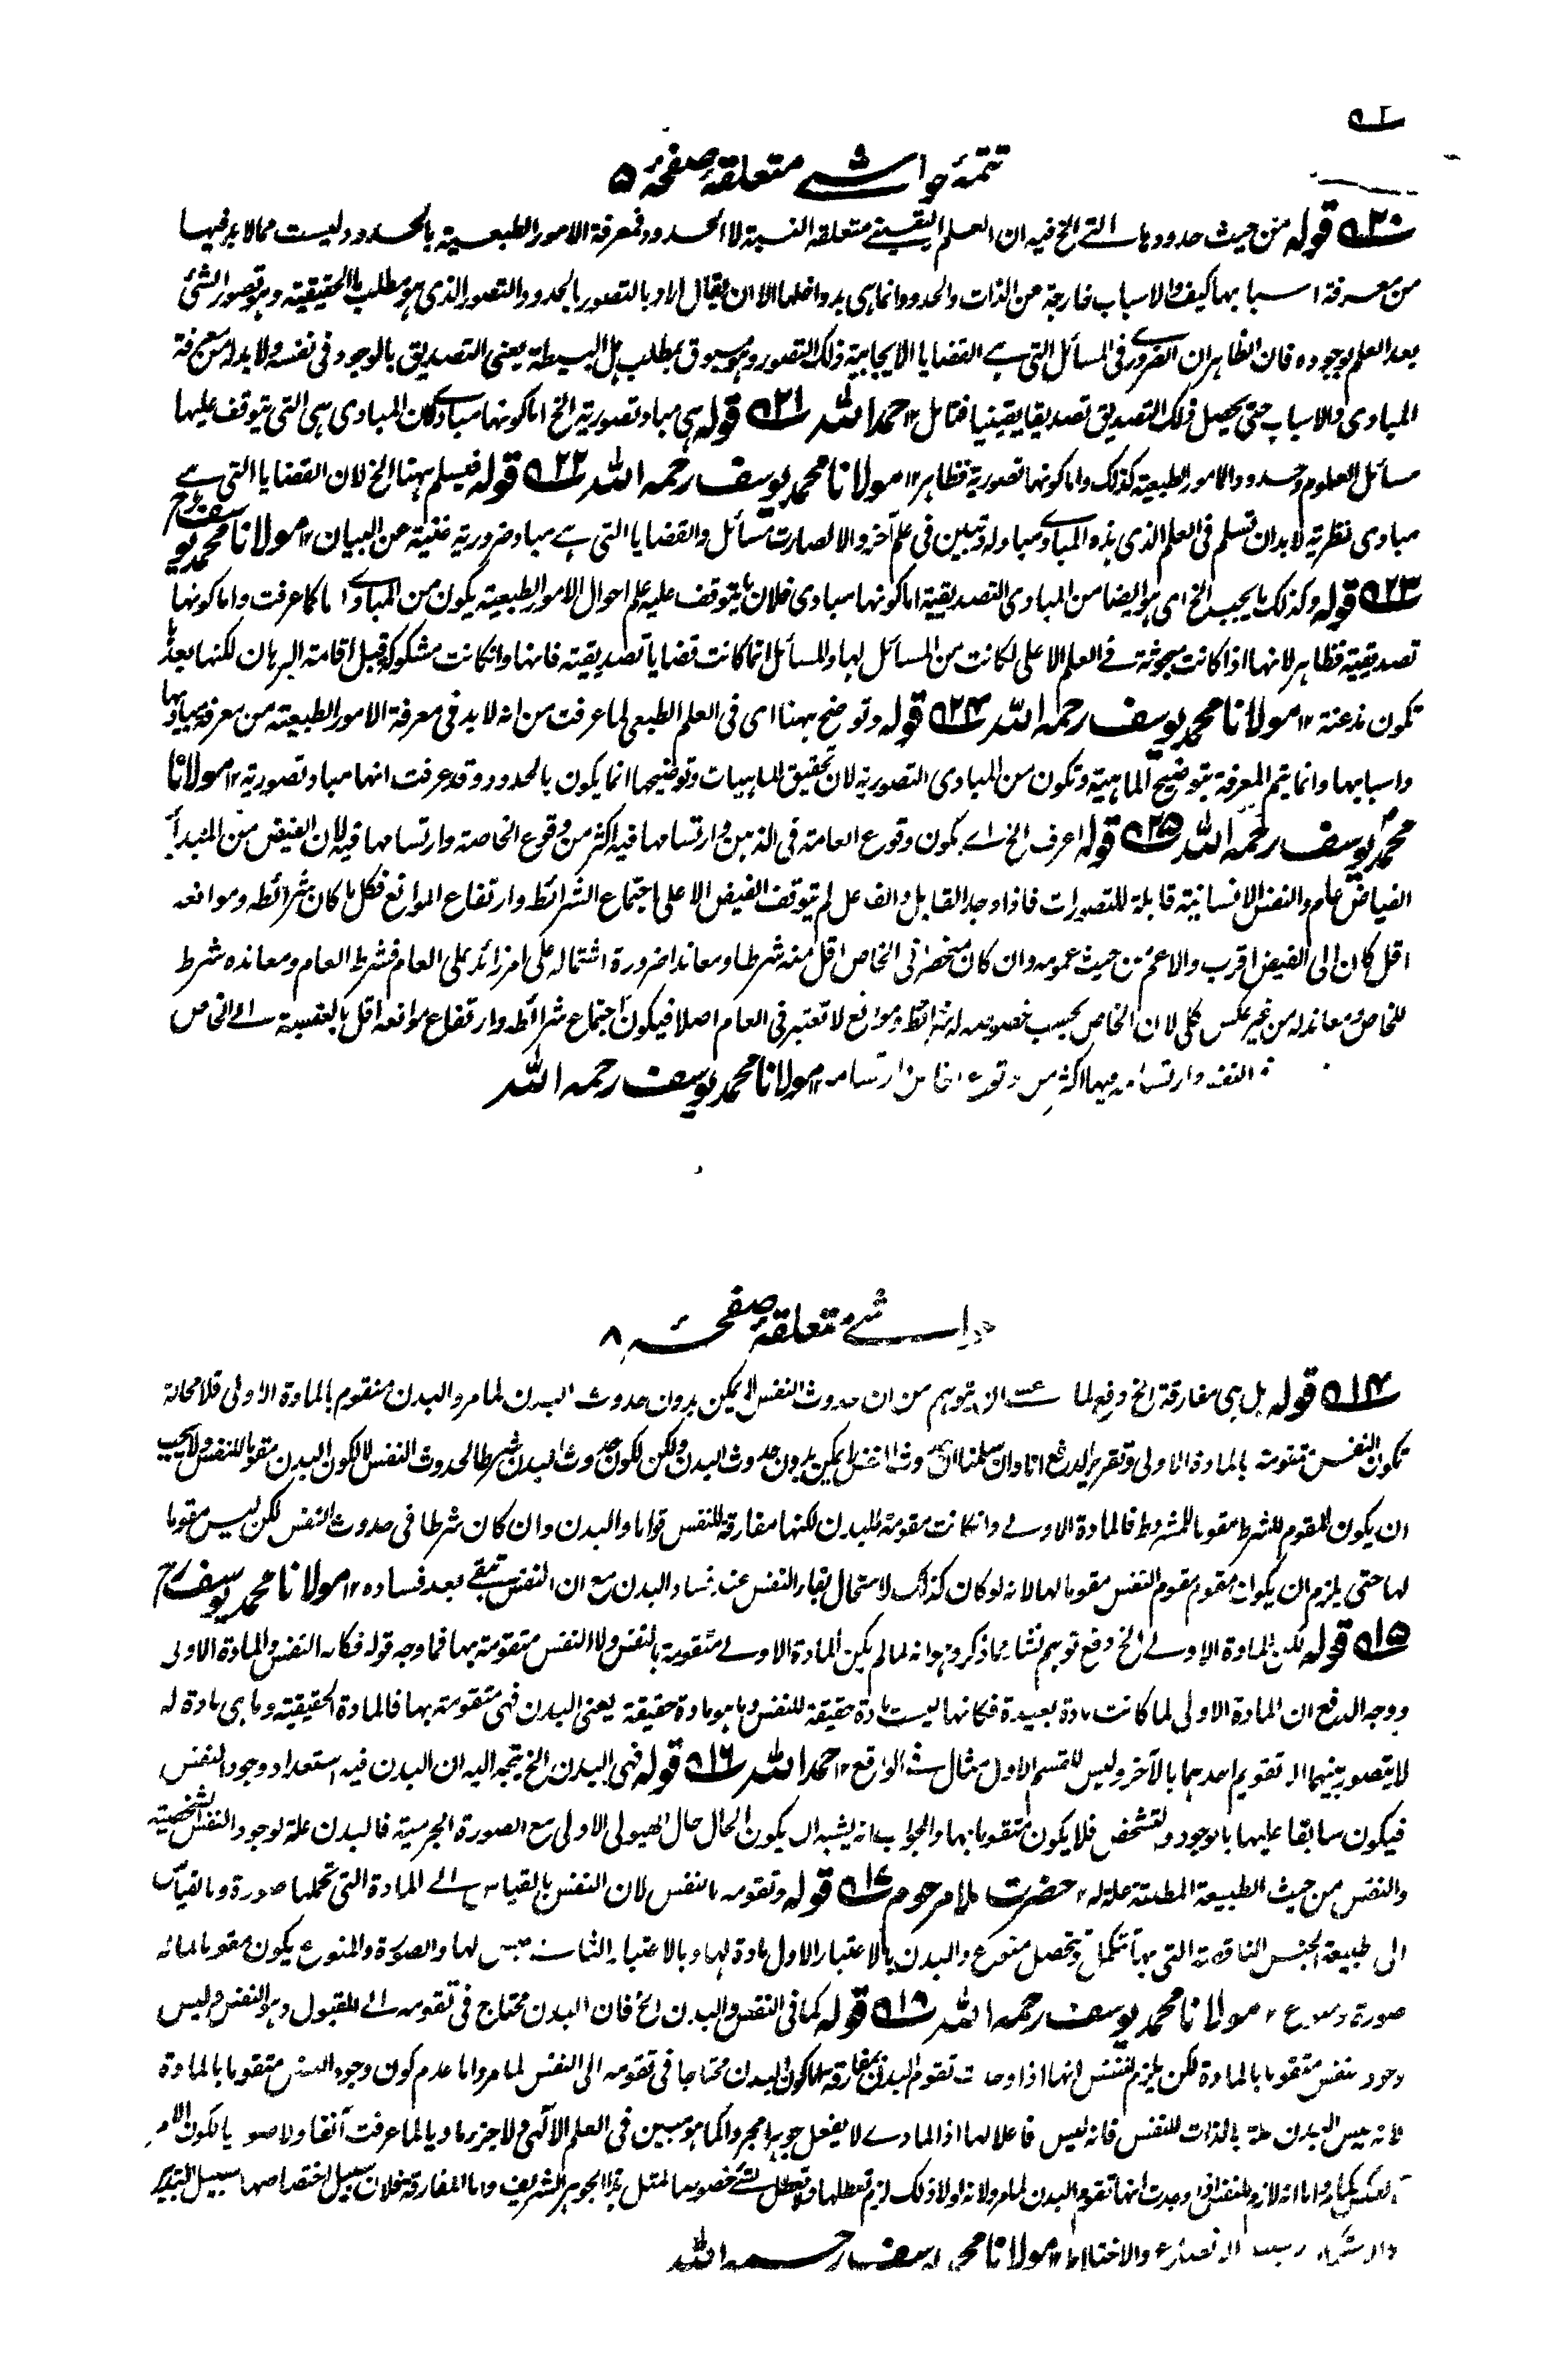 تتمۂ حواشی متعلقۂ صفحۂ ۵
۵۲۰ قوله من حیث حدودها التی الخ فیه ان العلم الیقینی متعلقه النسبة لا الحدود فمعرفة الامور الطبعیة بالحدود لیست مما لا بد فیها
من معرفة اسبابها کیف والاسباب خارجة عن الذات والحدود انما هی بدواخلها الا ان یقال اراد بالتصور بالحدود التصور الذی هو مطلب ما الحقیقیة وهو تصور الشئ
بعد العلم بوجوده فان الظاهر ان الضروری فی المسائل التی هی القضایا الایجابیة ذلک التصور وهو مسبوق بمطلب هل البسیطة یعنی التصدیق بالوجود فی نفسه ولا بد له من معرفة
المبادی والاسباب حتی یحصل ذلک التصدیق تصدیقا یقینیا فتامل ۱۲ حمد الله ۵۲۱ قوله هی مباد تصوریة الخ اما کونها مبادی فلان المبادی هی التی یتوقف علیها
مسائل العلوم وحدود الامور الطبعیة کذلک واما کونها تصوریة فظاهر ۱۲ مولانا محمد یوسف رحمه الله ۵۲۲ قوله فیسلم ههنا الخ لان القضایا التی هی
مبادی نظریة لا بد ان تسلم فی العلم الذی هذه المبادی مباد له وتبین فی علم آخر والا لصارت مسائل والقضایا التی هی مباد ضروریة غنیة عن البیان ۱۲ مولانا محمد یوسف رح
۵۲۳ قوله وکذلک ما یجب الخ ای هو ایضا من المبادی التصدیقیة اما کونها مبادی فلان ما یتوقف علیه علم احوال الامور الطبعیة یکون من المبادی لها کما عرفت واما کونها
تصدیقیة فظاهر لانها اذا کانت مبحوثة فی العلم الاعلی لکانت من المسائل لها والمسائل انما کانت قضایا تصدیقیة فانها وان کانت مشکوکة قبل اقامة البرهان لکنها بعدها
تکون مذعنة ۱۲ مولانا محمد یوسف رحمه الله ۵۲۴ قوله وتوضح ههنا ای فی العلم الطبعی لما عرفت من انه لا بد فی معرفة الامور الطبعیة من معرفة مبادیها
واسبابها وانما یتم المعرفة بتوضیح الماهیة وتکون من المبادی التصوریة لان تحقیق الماهیات وتوضیحها انما یکون بالحدود وقد عرفت انها مباد تصوریة ۱۲ مولانا
محمد یوسف رحمه الله ۵۲۵ قوله اعرف الخ ای یکون وقوع العامة فی الذهن وارتسامها فیه اکثر من وقوع الخاصة وارتسامها فیه لان الفیض من المبدأ
الفیاض عام والنفس الانسانیة قابلة للتصورات فاذا وجد القابل والفاعل لم یتوقف الفیض الا علی اجتماع الشرائط وارتفاع الموانع فکل ما کان شرائطه وموانعه
اقل کان الی الفیض اقرب والاعم من حیث عمومه وان کان منحصرا فی الخاص اقل منه شرطا ومعاندا ضرورة اشتماله علی امر زائد علی العام فشرط العام ومعانده شرط
للخاص ومعاند له من غیر عکس کلی لان الخاص بحسب خصوصه له شرائط وموانع لا تعتبر فی العام اصلا فیکون اجتماع شرائطه وارتفاع موانعه اقل بالنسبة الی الخاص
النفس وارتسامه فیها اکثر من وقوع الخاص وارتسامه ۱۲ مولانا محمد یوسف رحمه الله
حواشی متعلقۂ صفحۂ ۸
۵۱۴ قوله بل هی مفارقة الخ دفع لما عسی ان یتوهم من ان حدوث النفس لا یمکن بدون حدوث البدن لما مر والبدن متقوم بالمادة الاولی فلا محالة
تکون النفس متقومة بالمادة الاولی وتقریر الدفع انا وان سلمنا ان حدوث النفس لا یمکن بدون حدوث البدن ولکن لکون حدوث البدن شرطا لحدوث النفس لا لکون البدن مقوما للنفس ولا یجب
ان یکون المقوم للشرط مقوما للمشروط فالمادة الاولی وان کانت مقومة للبدن لکنها مفارقة للنفس قواما والبدن وان کان شرطا فی حدوث النفس لکن لیس مقوما
لها حتی یلزم ان یکون مقوم مقوم النفس مقوما لها لانه لو کان کذلک لاستحال بقاء النفس عند فساد البدن مع ان النفس تبقی بعد فساده ۱۲ مولانا محمد یوسف رح
۵۱۵ قوله لکن المادة الاولی الخ دفع توهم نشأ مما ذکر وهو انه لما لم یکن المادة الاولی متقومة بالنفس ولا النفس متقومة بها فما وجه قوله فکان النفس والمادة الاولی
ووجه الدفع ان المادة الاولی لما کانت مادة بعیدة فکانها لیست مادة حقیقة للنفس وما هو مادة حقیقة یعنی البدن فهی متقومة بها فالمادة الحقیقیة وما هی مادة له
لا یتصور بینهما الا تقویم احدهما بالآخر ولیس للقسم الاول مثال فی الواقع ۱۲ حمد الله ۵۱۶ قوله فهی البدن الخ یتجه الیه ان البدن فیه استعداد وجود النفس
فیکون سابقا علیها بالوجود والتشخص فلا یکون متقوما بها والجواب انه یشبه ان یکون الحال حال الهیولی الاولی مع الصورة الجرمیة فالبدن علة لوجود النفس الشخصیة
والنفس من حیث الطبیعة المطلقة علة له ۱۲ حضرت ملا مرحوم ۵۱۷ قوله وتقومه بالنفس لان النفس بالقیاس الی المادة التی تحملها صورة وبالقیاس
الی طبیعة الجنس الناقصة التی بها تتکمل وتحصل منوع والبدن بالاعتبار الاول مادة لها وبالاعتبار الثانی جنس لها والصورة والمنوع یکون مقوما لما له
صورة ومنوع ۱۲ مولانا محمد یوسف رحمه الله ۵۱۸ قوله کما فی النفس والبدن الخ فان البدن محتاج فی تقومه الی المقبول وهو النفس ولیس
وجود النفس متقوما بالمادة لکن یلزم للنفس انها اذا وجدت تقوم البدن بمفارقه اما کون البدن محتاجا فی تقومه الی النفس لما مر واما عدم کون وجود النفس متقوما بالمادة
لانه لیس البدن علة بالذات للنفس فانه لیس فاعلا لها اذ المادی لا یفعل جوهرا مجردا کما هو مبین فی العلم الالهی ولا جزء مادیا لما عرفت آنفا ولا صوریا لکون الامر
بالعکس کما مر واما انه لازم للنفس اذا وجدت انها تقوم البدن لما مر ولانه لو لا ذلک لزم تعطلها ولا تعطل لشئ خصوصا لمثل هذا الجوهر الشریف واما المفارقة فلان سبیل اختصاصها سبیل التدبیر
والاختلاط ۱۲ مولانا محمد یوسف رحمه الله